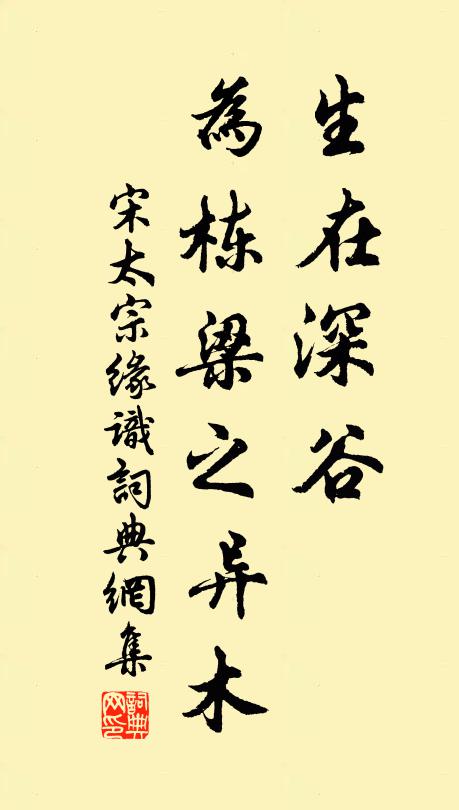 生在深谷
為栋梁之异木
宋太宗缘識詞典網集
詞典网印